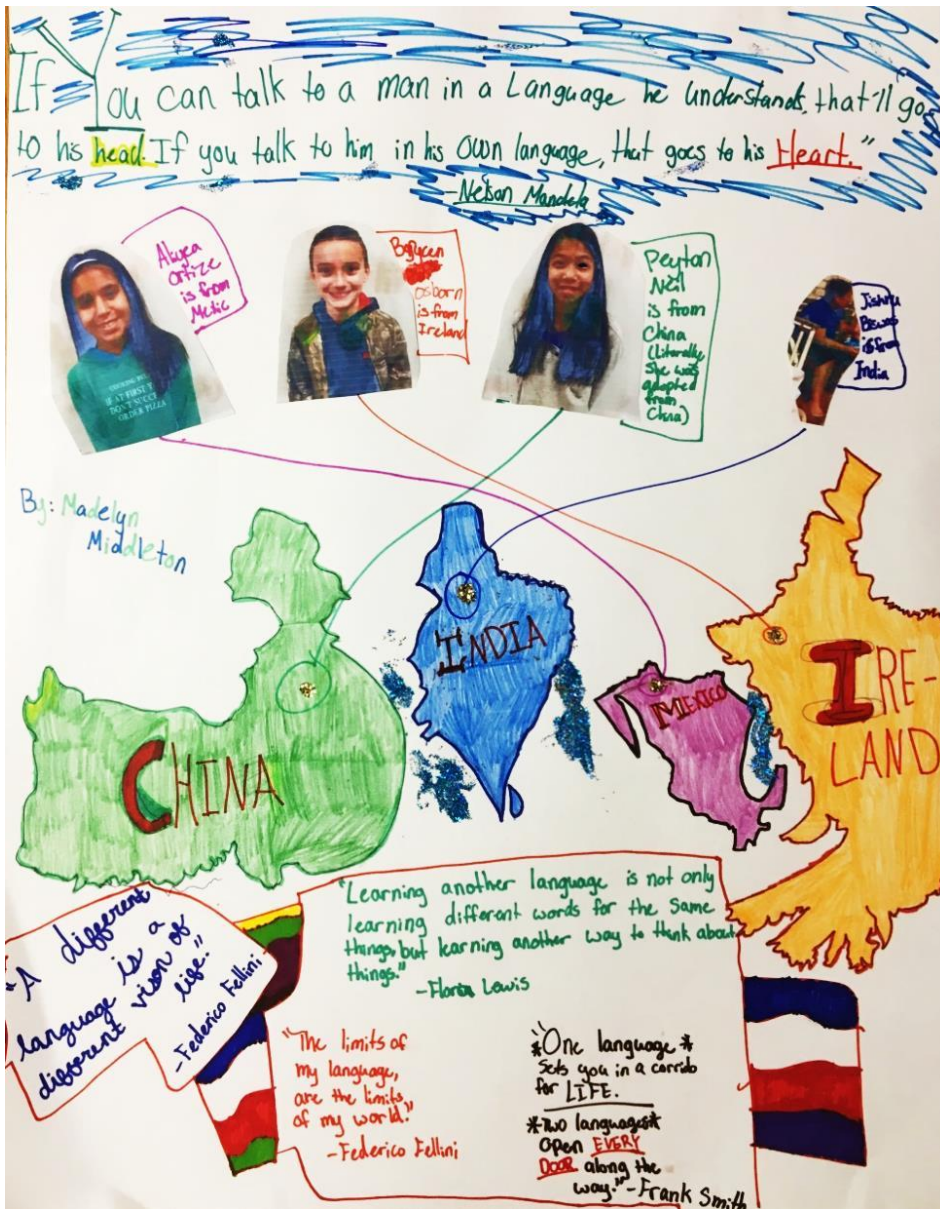 If You can talk to a man in a Language he understands, that'll go
to his head. If you talk to him in his own language, that goes to his Heart."
-Nelson Mandela
Alyea
ortize
is from
Mexic
osborn
is from
Ireland
Peyton
Neil
is from
China
(literally
she was
adopted
from
China)
Jishnu
Biswas
is from
India
IF AT FIRST YOU
DON'T SUCC
ORDER PIZZA
By: Madelyn
Middleton
CHINA
INDIA
MEXICO
IRE-
LAND
"A different
language is a
different vison of
life."
-Federico Fellini-
"Learning another language is not only
learning different words for the same
things, but learning another way to think about
things."
-Flora Lewis
"The limits of
my language,
are the limits
of my world."
-Federico Fellini
"*One language*
Sets you in a corrido
for LIFE.
*Two languages*
Open EVERY
DOOR along the
way."-Frank Smith